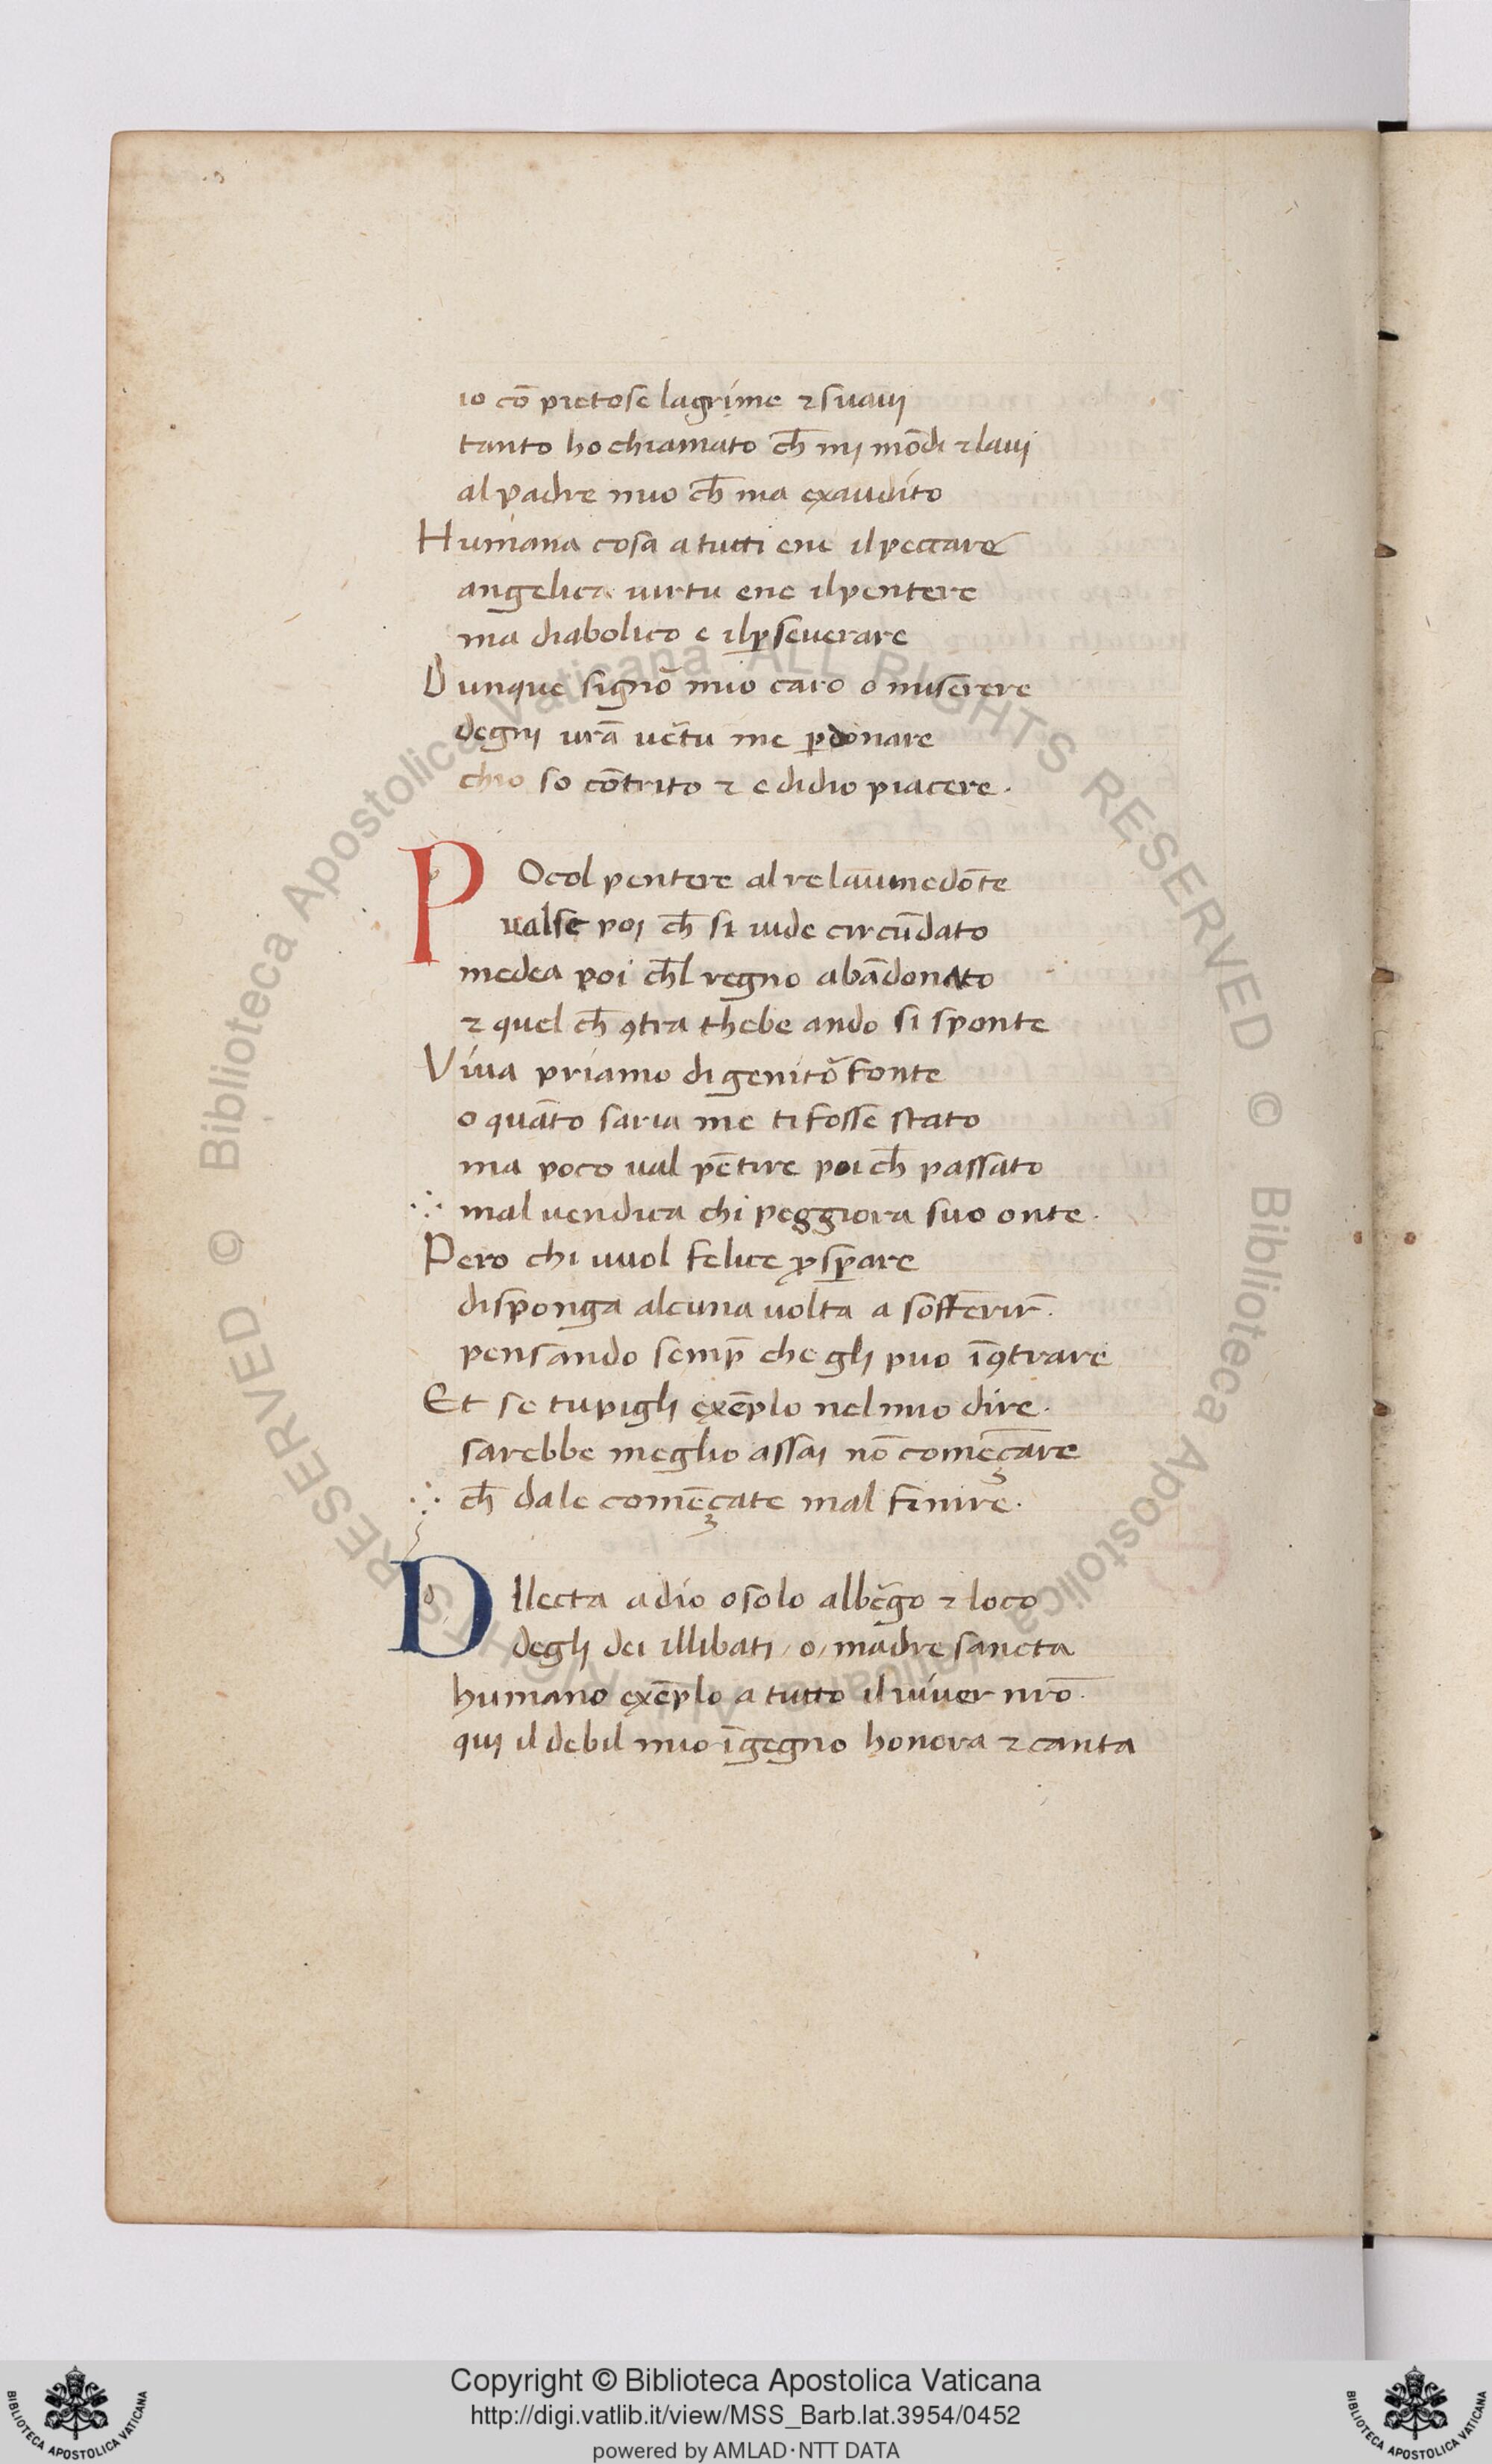 io cō pietose lagrime ⁊ suauj
tanto ho chiamato ch̄ mj mōdi ⁊ lauj
al padre mio ch̄ ma exaudito
Humana cosa a tutti ene il peccare
angelica uirtu ene il pentere
ma diabolico e il ꝑseuerare
Dunque signō mio caro o miserere
degnj urā uc̄tu me ꝑdonare
chio so cōtrito ⁊ e di dio piacere.
POcol pentere al re laumedōte
ualse poj ch̄ si uide circūdato
medea poi ch̄l regno abādonato
⁊ quel ch̄ ꝯtra thebe ando si sponte
Viua priamo di genitō fonte
o quāto saria me ti fosse stato
ma poco ual pētire poi ch̄ passato
mal uendica chi peggiora suo onte.
Pero chi uuol felice ꝓsꝑare
disponga alcuna uolta a sofferir̄.
pensando semp̄ che glj puo īꝯtrare
Et se tu piglj exēplo nel mio dire.
sarebbe meglio assaj nō comēçare
ch̄ dale comēçate mal finire.
DIlecta a dio o solo albēgo ⁊ loco
deglj dei illibatj / o / madre sancta
humano exēplo a tutto il uiuer nrō.
quj il debil mio īgegno honora ⁊ canta
Copyright © Biblioteca Apostolica Vaticana
http://digi.vatlib.it/view/MSS_Barb.lat.3954/0452
powered by AMLAD·NTT DATA
© Biblioteca Apostolica Vaticana ALL RIGHTS RESERVED © Biblioteca Apostolica Vaticana ALL RIGHTS RESERVED
BIBLIOTECA APOSTOLICA VATICANA
BIBLIOTECA APOSTOLICA VATICANA